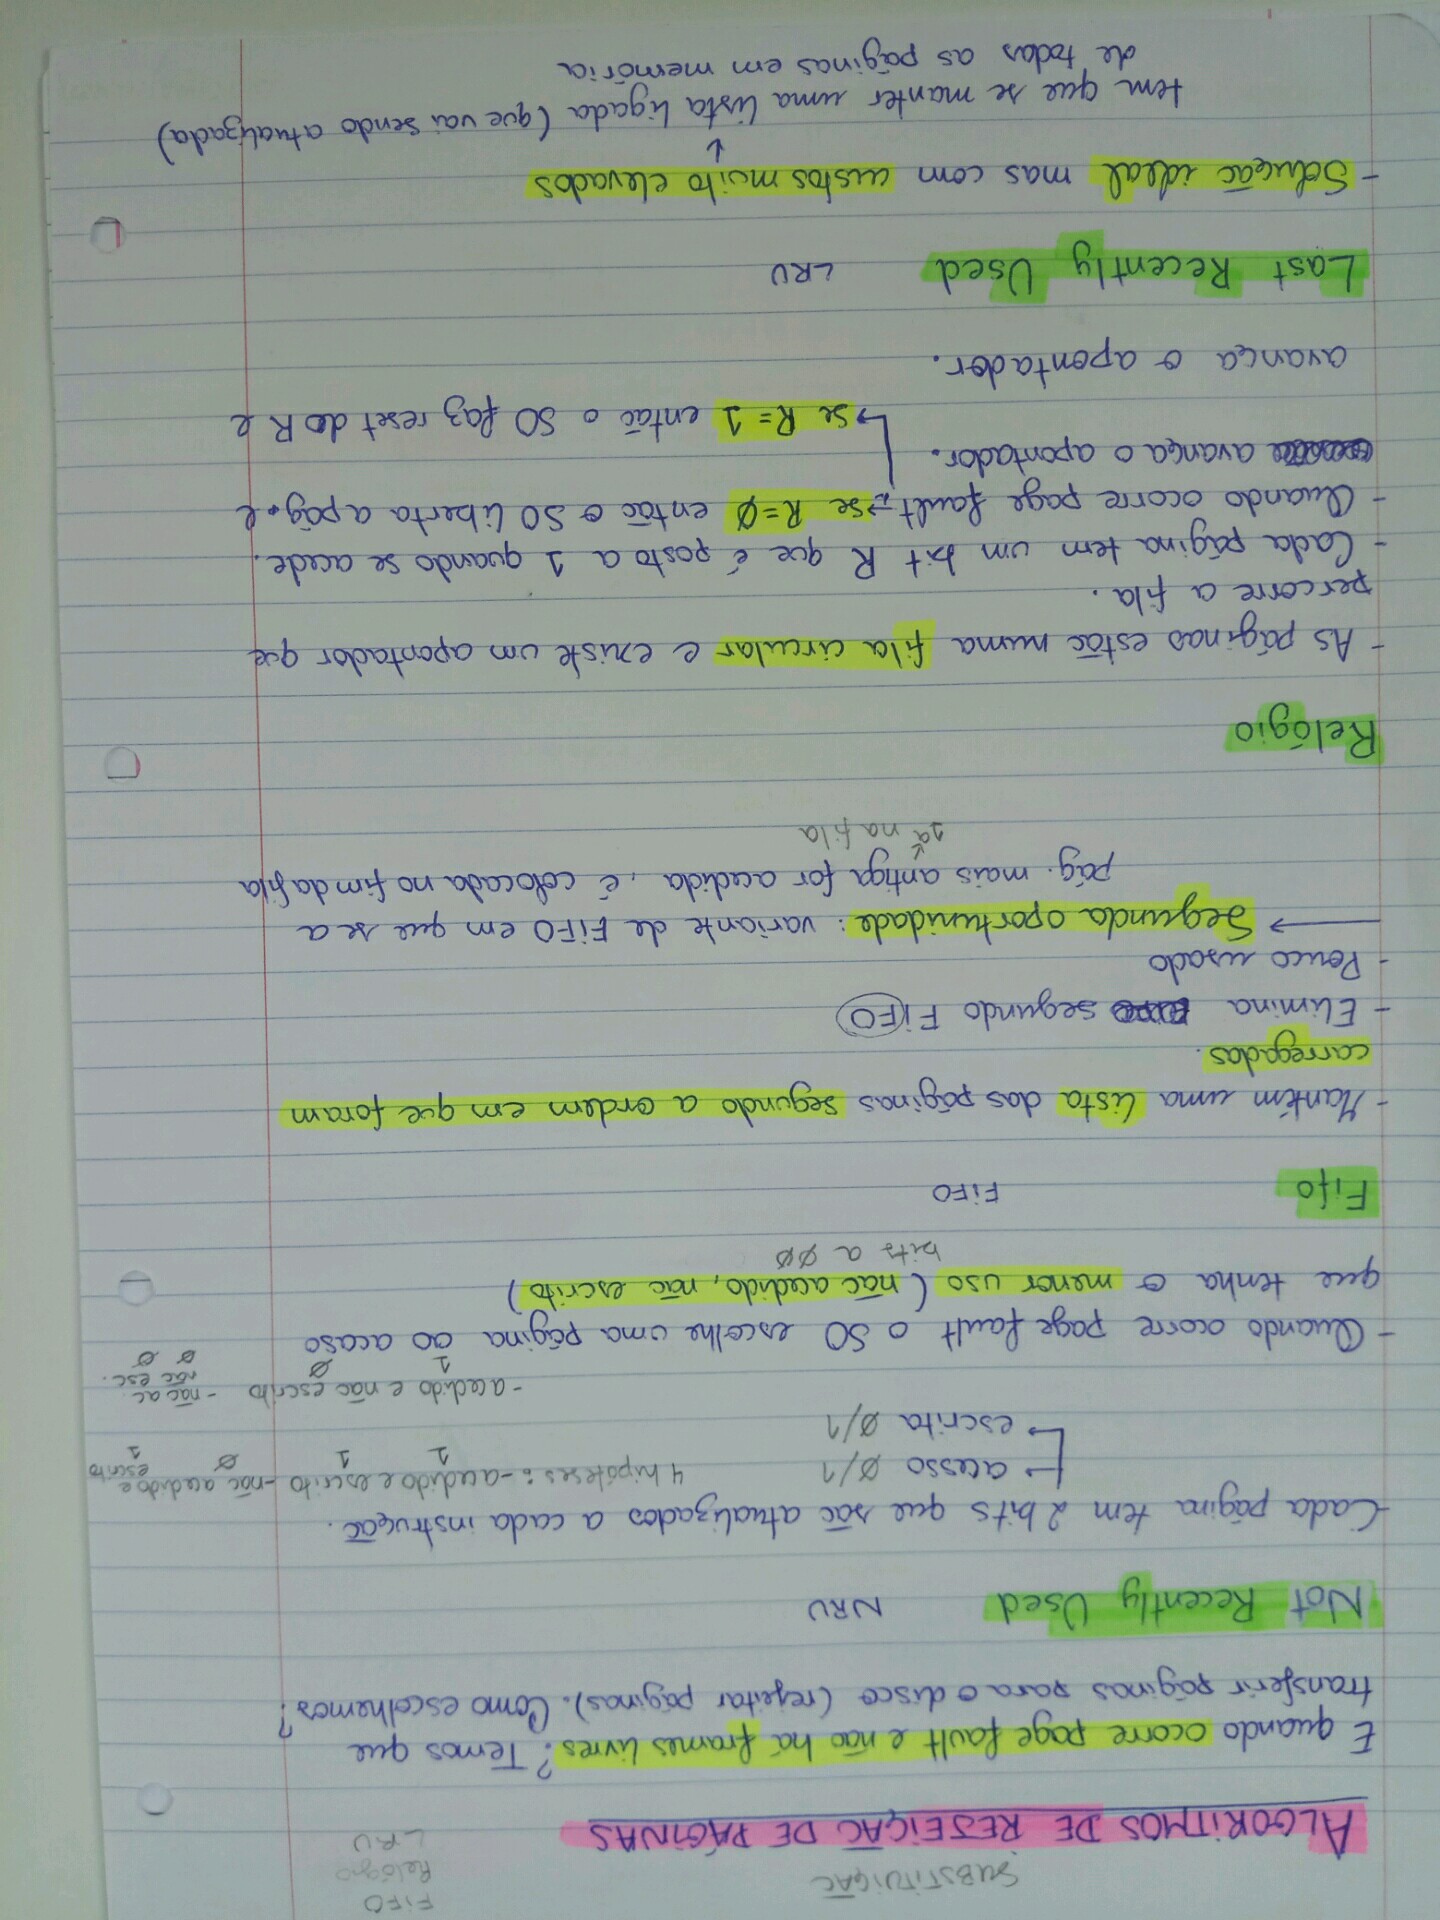 SUBSTITUIÇÃO
FIFO
Relógio
LRU
ALGORITMOS DE REJEIÇÃO DE PÁGINAS
E quando ocorre page fault e não há frames livres? Temos que
transferir páginas para o disco (rejeitar páginas). Como escolhemos?
Not Recently Used NRU
-Cada página tem 2 bits que são atualizados a cada instrução.
acesso 0/1
escrita 0/1
4 hipóteses: -acedido e escrito -não acedido e
escrito
1 1 0 1
-acedido e não escrito -não ac.
não esc.
1 0 0 0
- Quando ocorre page fault o SO escolhe uma página ao acaso
que tenha o menor uso (não acedido, não escrito)
bits a 00
Fifo FIFO
- Mantém uma lista das páginas segundo a ordem em que foram
carregadas.
- Elimina segundo FIFO
- Pouco usado
→ Segunda oportunidade: variante de FIFO em que se a
pág. mais antiga for acedida, é colocada no fim da fila
1ª na fila
Relógio
- As páginas estão numa fila circular e existe um apontador que
percorre a fila.
- Cada página tem um bit R que é posto a 1 quando se acede.
- Quando ocorre page fault → se R=0 então o SO liberta a pág. e
avança o apontador.
→ se R=1 então o SO faz reset do R e
avança o apontador.
Last Recently Used LRU
- Solução ideal mas com custos muito elevados
↓
tem que se manter uma lista ligada (que vai sendo atualizada)
de todas as páginas em memória